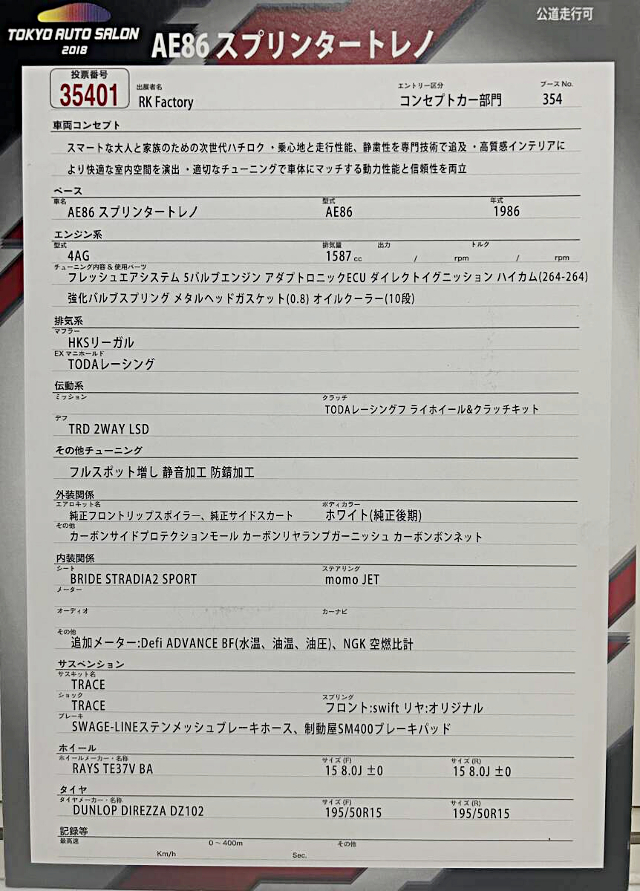 公道走行可
TOKYO AUTO SALON
2018
AE86 スプリンタートレノ
投票番号
35401
出展者名
RK Factory
エントリー区分
コンセプトカー部門
ブース No.
354
車両コンセプト
スマートな大人と家族のための次世代ハチロク ・乗心地と走行性能、静粛性を専門技術で追及 ・高質感インテリアに
より快適な室内空間を演出 ・適切なチューニングで車体にマッチする動力性能と信頼性を両立
ベース
車名 型式 年式
AE86 スプリンタートレノ AE86 1986
エンジン系
型式 排気量 出力 トルク
4AG 1587 cc / rpm / rpm
チューニング内容 & 使用パーツ
フレッシュエアシステム 5バルブエンジン アダプトロニックECU ダイレクトイグニッション ハイカム(264-264)
強化バルブスプリング メタルヘッドガスケット(0.8) オイルクーラー(10段)
排気系
マフラー
HKSリーガル
EX マニホールド
TODAレーシング
伝動系
ミッション クラッチ
TODAレーシングフ ライホイール&クラッチキット
デフ
TRD 2WAY LSD
その他チューニング
フルスポット増し 静音加工 防錆加工
外装関係
エアロキット名 ボディカラー
純正フロントリップスポイラー、純正サイドスカート ホワイト(純正後期)
その他
カーボンサイドプロテクションモール カーボンリヤランプガーニッシュ カーボンボンネット
内装関係
シート ステアリング
BRIDE STRADIA2 SPORT momo JET
メーター
オーディオ カーナビ
その他
追加メーター:Defi ADVANCE BF(水温、油温、油圧)、NGK 空燃比計
サスペンション
サスキット名
TRACE
ショック スプリング
TRACE フロント:swift リヤ:オリジナル
ブレーキ
SWAGE-LINEステンメッシュブレーキホース、制動屋SM400ブレーキパッド
ホイール
ホイールメーカー・名称 サイズ (F) サイズ (R)
RAYS TE37V BA 15 8.0J ±0 15 8.0J ±0
タイヤ
タイヤメーカー・名称 サイズ (F) サイズ (R)
DUNLOP DIREZZA DZ102 195/50R15 195/50R15
記録等
最高速 0～400m その他
Km/h Sec.